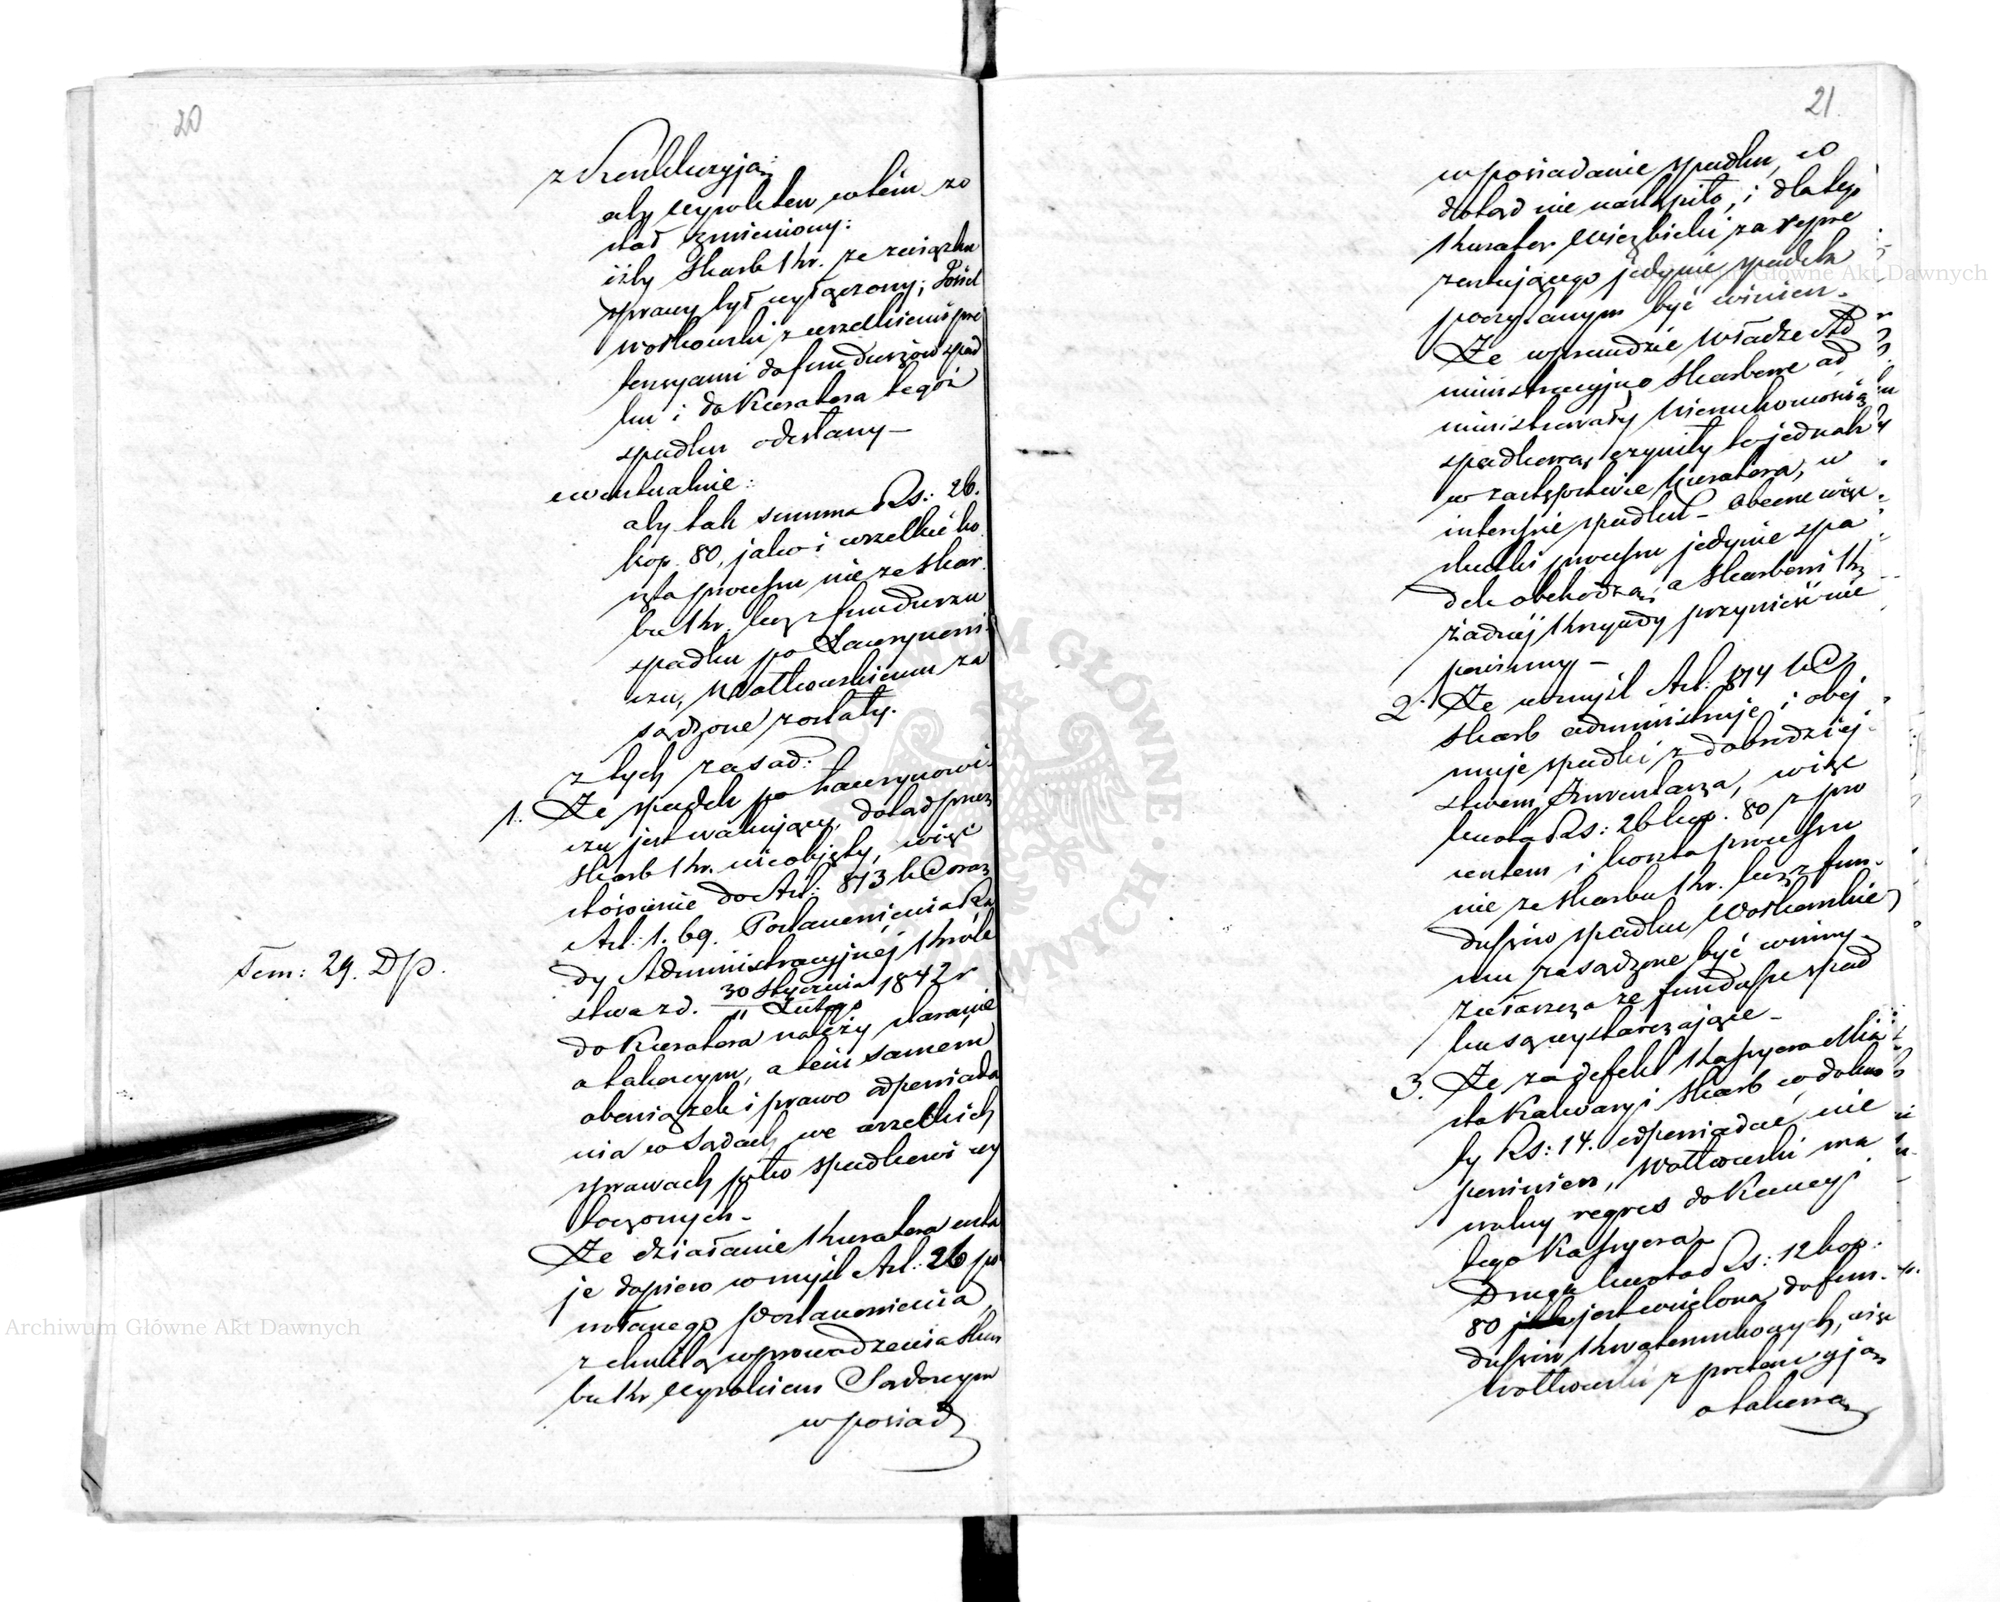 20
z Konkluzyją:
aby wyrok ten w tém zo
stał zmieniony:
iżby Skarb Kr. ze związku
sprawy był wyłączony;
Wołkowski z wszelkiemi pre
tensyami do funduszów spad
ku i do Kuratora tegoż
spadku odesłany —
ewentualnie:
aby tak summa Rs: 26.
kop. 80, jako i wszelkie ko
szta processu nie ze Skar
bu Kr. lecz z funduszu
spadku po Ławrynowi
czu, Wołkowskiemu za
sądzone zostały.
z tych zasad:
1. Że spadek po Ławrynowi
czu jest wakujący, dotąd przez
Skarb Kr. nieobjęty, więc
stósownie do Art: 813 KC oraz
Art: 1. b9. Postanowienia Ra
dy Administracyjnéj Króle
stwa z d. 30 Stycznia 1842 r
11 Lutego
do Kuratora należy staranie
o takowym, a tém samém
obowiązek i prawo odpowiada
nia w Sądach we wszelkich
sprawach p-ko spadkowi wy
toczonych —
Tom: 29. Dp.
Że działanie Kuratora usta
je dopiero w myśl Art: 26 po
wołanego postanowienia,
z chwilą wprowadzenia Skar
bu Kr wyrokiem Sądowym
w posiad
21
w posiadanie spadku, co
dotąd nie nastąpiło, i dla tego
Kurator Wierzbicki za repre
zentującego jedynie spadek
poczytanym być winien.
Że wprawdzie Władze Ad
ministracyjno Skarbowe ad
ministrowały Nieruchomością
spadkową, czyniły to jednak
w zastępstwie Kuratora, w
interesie spadku — obecne więc
skutki processu jedynie spa
dek obchodzą, a Skarbowi Kr
żadnéj krzywdy przynieść nie
powinny —
2. Że w myśl Art: 814 KC
Skarb administruje i obej
muje spadki z dobrodziej
stwem Inwentarza, więc
kwota Rs: 26 kop. 80 z pro
centem i koszta processu
nie ze Skarbu Kr. lecz z fun
duszów spadku Wołkowskie
mu zasądzone być winny,
zwłaszcza że fundusze spad
ku są wystarczające —
3. Że za defekt Kassyera Mia
sta Kalwaryi Skarb, co do kwo
ty Rs: 14. odpowiadać nie
powinien, Wołkowski ma
wolny regres do Kaucyi
tego Kassyera
Druga kwota Rs: 12 kop:
80 jest wcielona do fun
duszów Kwaterunkowych, więc
Wołkowski z pretensyją
o takową
Archiwum Główne Akt Dawnych